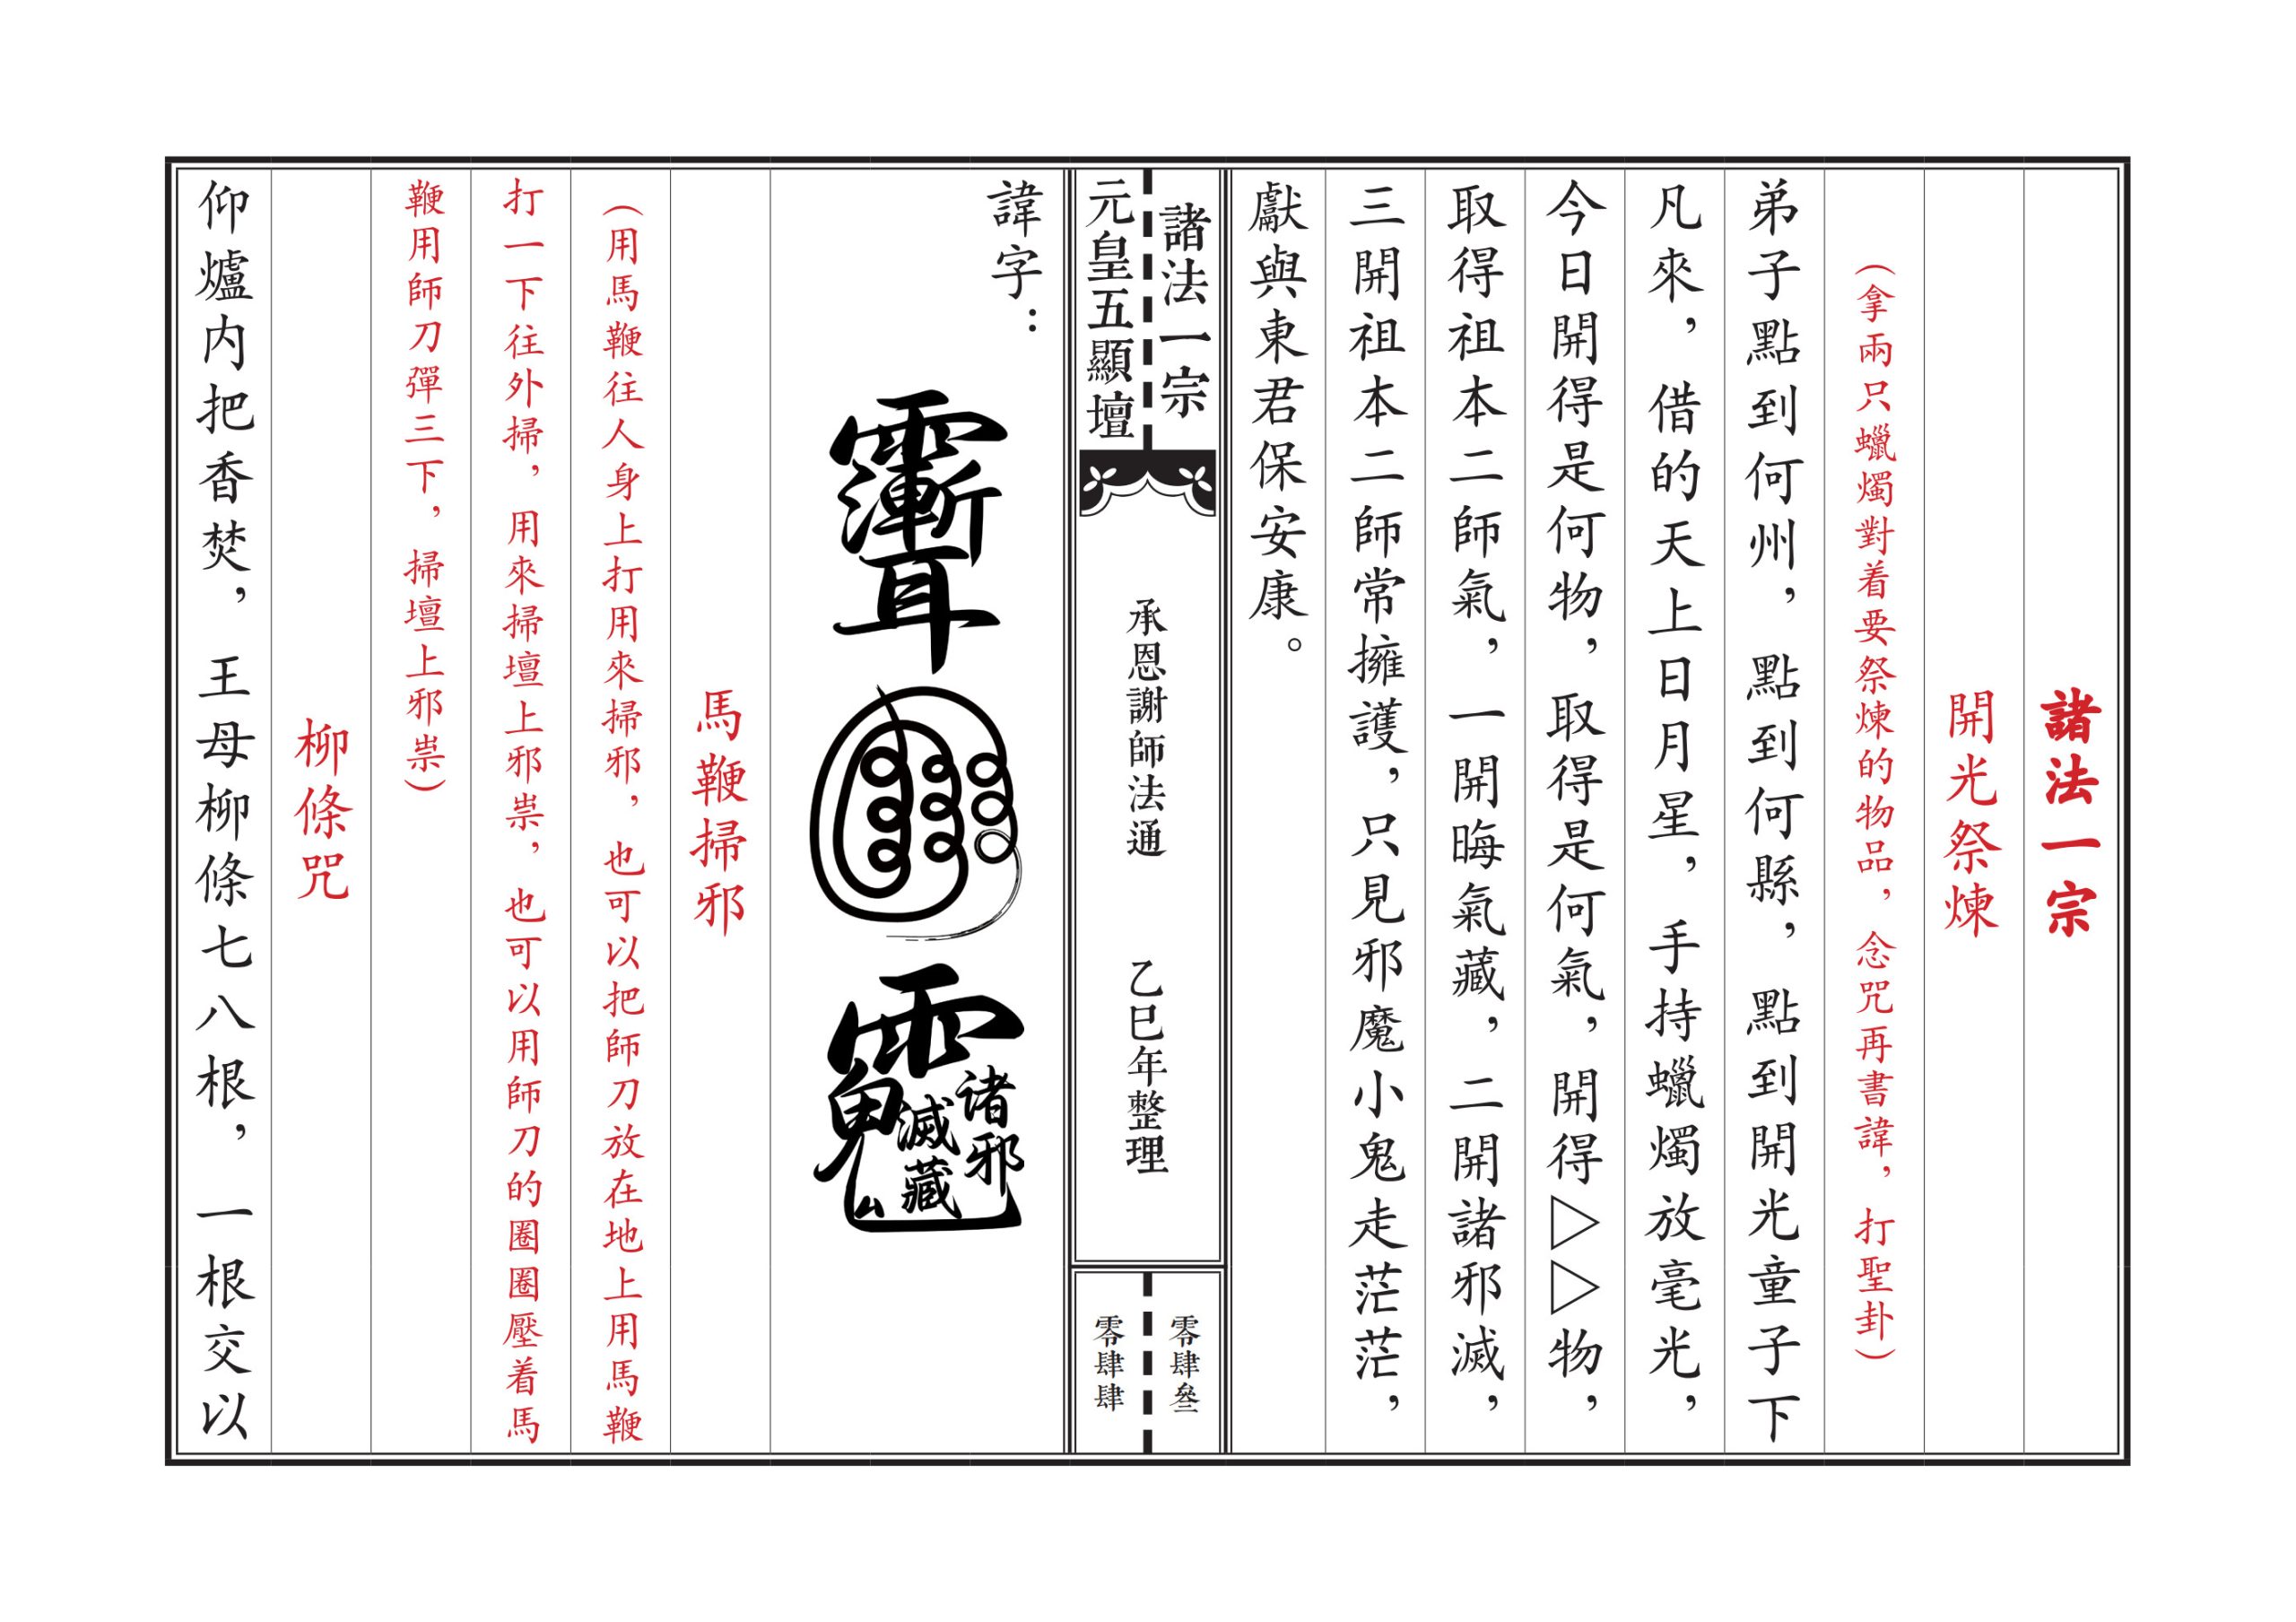 諸法一宗
開光祭煉
（拿兩只蠟燭對着要祭煉的物品，念咒再書諱，打聖卦）
弟子點到何州，點到何縣，點到開光童子下
凡來，借的天上日月星，手持蠟燭放毫光，
今日開得是何物，取得是何氣，開得▷▷物，
取得祖本二師氣，一開晦氣藏，二開諸邪滅，
三開祖本二師常擁護，只見邪魔小鬼走茫茫，
獻與東君保安康。
諸法一宗
元皇五顯壇
承恩謝師法通 乙巳年整理
零肆叄
零肆肆
諱字：
诸邪
滅藏
馬鞭掃邪
（用馬鞭往人身上打用來掃邪，也可以把師刀放在地上用馬鞭
打一下往外掃，用來掃壇上邪祟，也可以用師刀的圈圈壓着馬
鞭用師刀彈三下，掃壇上邪祟）
柳條咒
仰爐内把香焚，王母柳條七八根，一根交以